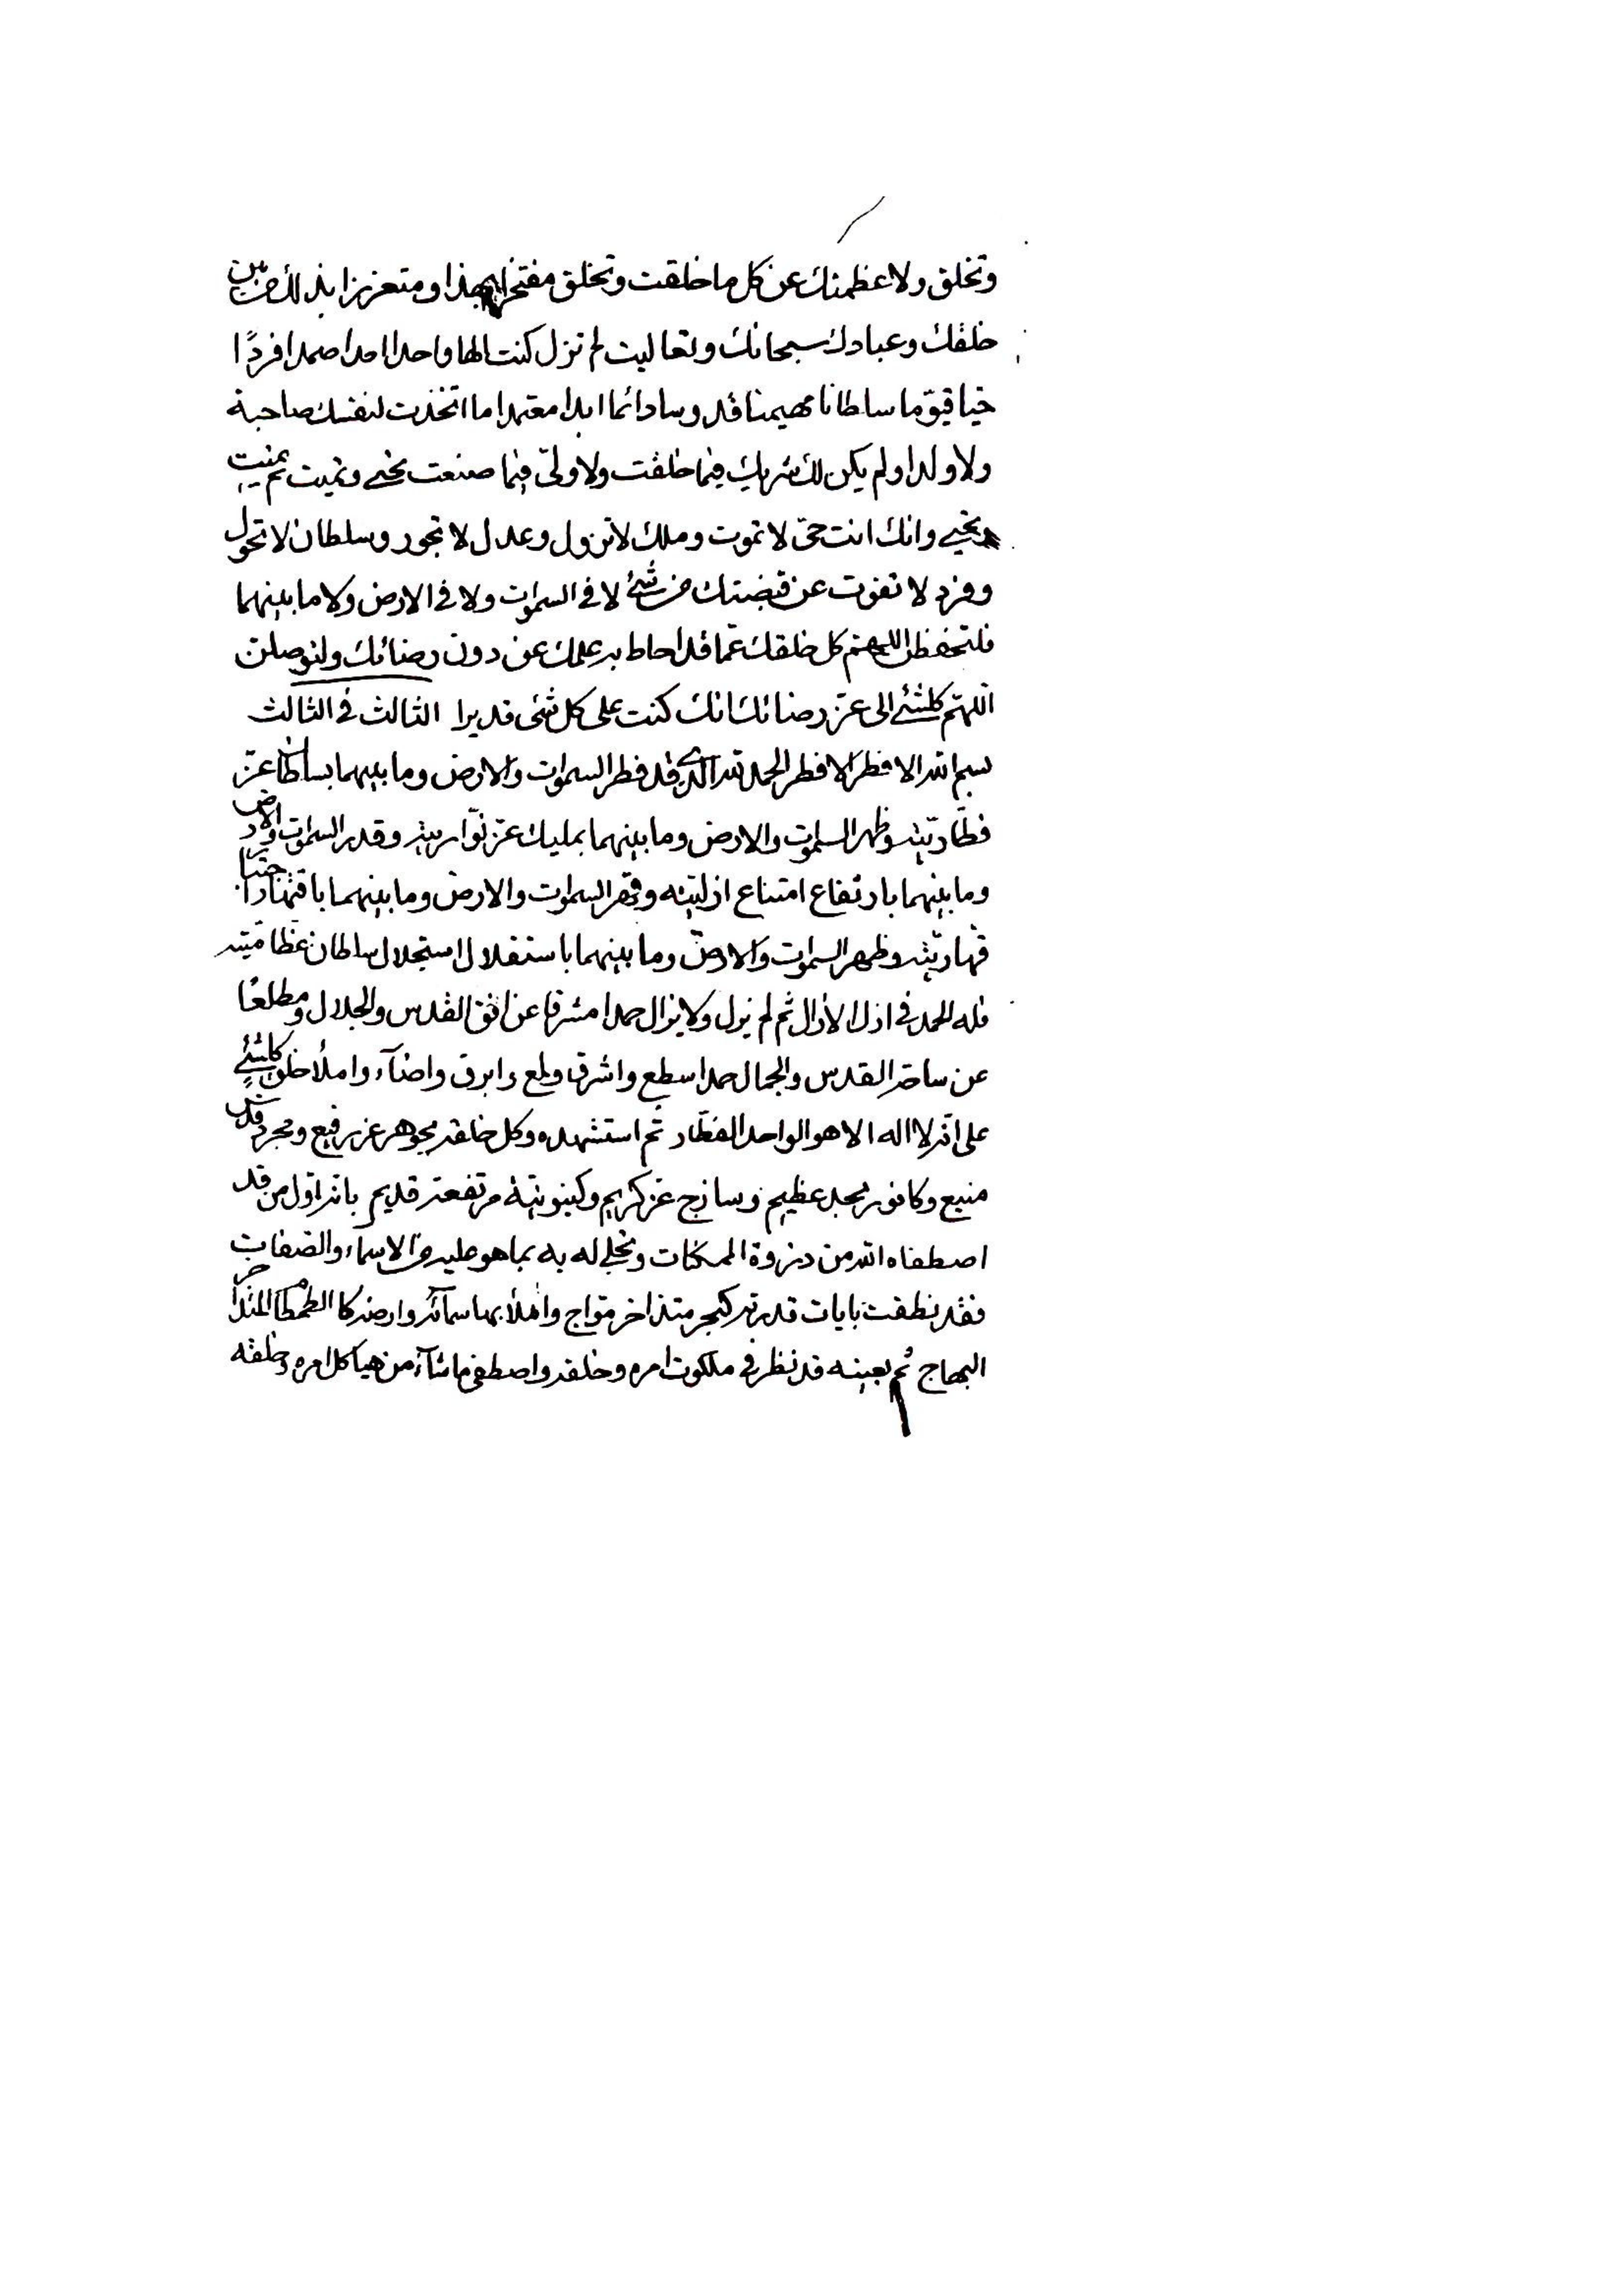 وتخلق ولاعظمنك عن كل ما خلقت وتخلق مفتخرا بهذا ومتعززا بذلك من بين
خلقك وعبادك سبحانك وتعاليت لم تزل كنت الها واحدا احدا صمدا فردًا
حيا قيوّما سلطانا مهيمنا قدوسا دائما ابدا معتمدا ما اتخذت لنفسك صاحبة
ولا ولدا ولم يكن لك شريك فيما خلقت ولا ولىّ فيما صنعت تحيى وتميت ثم تميت
وتحيى وانك انت حىّ لا تموت وملك لا تزول وعدل لا تجور وسلطان لا تحول
وفرد لا تفوت عن قبضتك من شئ لا فى السموات ولا فى الارض ولا ما بينهما
فلتحفظن اللهم كل خلقك عمّا قد احاط به علمك عن دون رضائك ولتوصلن
اللهمّ كلشئ الى عزّ رضائك انك كنت على كل شئ قديرا الثالث فى الثالث
بسم الله الافطر الافطر الحمد لله الذى قد فطر السموات والارض وما بينهما بسلطان عزّ
فطّاريّته وظهر السموات والارض وما بينهما بمليك عزّ نوّاريته وقدر السموات والارض
وما بينهما بارتفاع امتناع ازليّته وقهر السموات والارض وما بينهما باقتهار
قهاريّته وظهر السموات والارض وما بينهما باستقلال استجلال سلطان عظاميّته
فله الحمد فى ازل الازال ثم لم يزل ولا يزال حمدا مشرقا عن افق القدس والجلال ومطلعًا
عن ساحة القدس والجمال حمدا سطع واشرق ولمع وابرق واضآء واملأ خلق كلشئ
على انه لا اله الا هو الواحد الفطّار ثم استشهده وكل خلقه بجوهر عز رفيع ومجرد قدس
منيع وكافور مجد عظيم وساذج عز كريم وكينونيّة مرتفعة قديم بانه اوّل من قد
اصطفاه الله من ذروة الممكنات وتجلى له به بما هو عليه من الاسماء والصفات
فقد نطقت بايات قدرته كبحر متذاخر موّاج واملأ بها سمآئه وارضه كالطمطام
البهاج ثم بعينه قد نظر فى ملكوت امره وخلقه واصطفى ما شآء من هياكل امره وخلقه